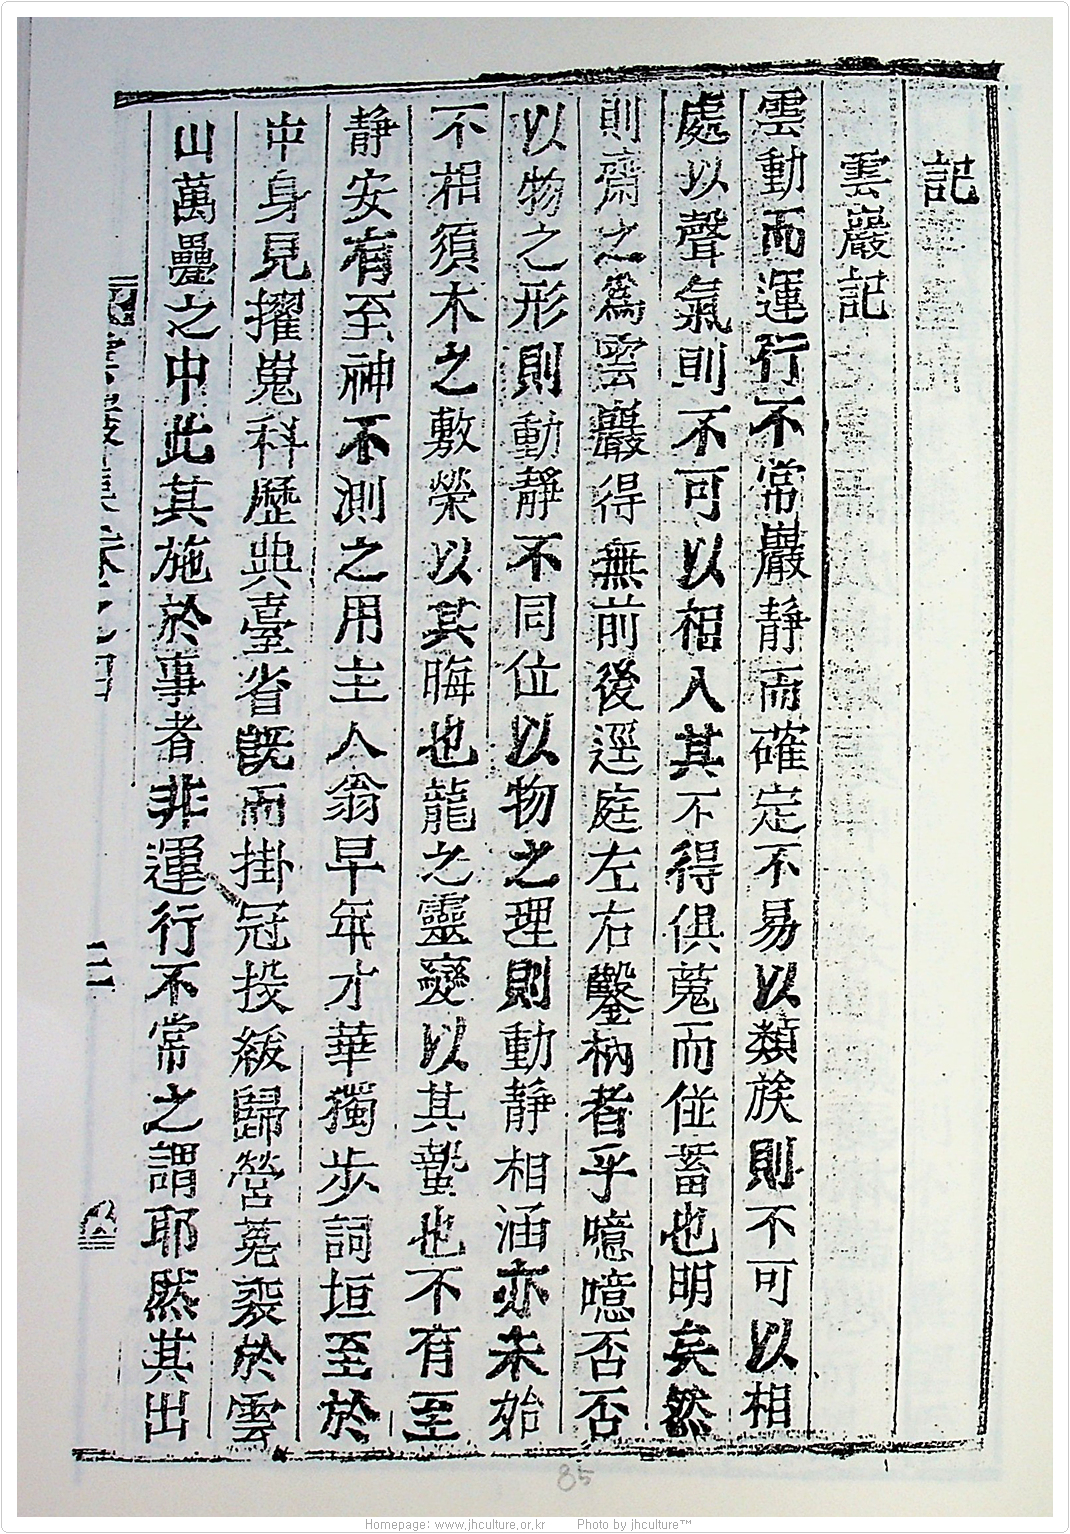 記
雲巖記
雲動而運行不常巖静而確定不易以類族則不可以相
處以聲氣則不可以相入其不得俱蒐而並蓄也明矣然
則齋之爲雲巖得無前後逕庭左右鑿枘者乎噫噫否否
以物之形則動靜不同位以物之理則動静相涵亦未始
不相須木之敷榮以其晦也龍之靈變以其蟄也不有至
静安有至神不測之用主人翁早年才華獨步詞垣至於
中身見擢嵬科歷典臺省旣而掛冠投紱歸營菟裘於雲
山萬疊之中此其施於事者非運行不常之謂耶然其出
雲巖集卷之四
二
85
Homepage: www.jhculture.or.kr Photo by jhculture™